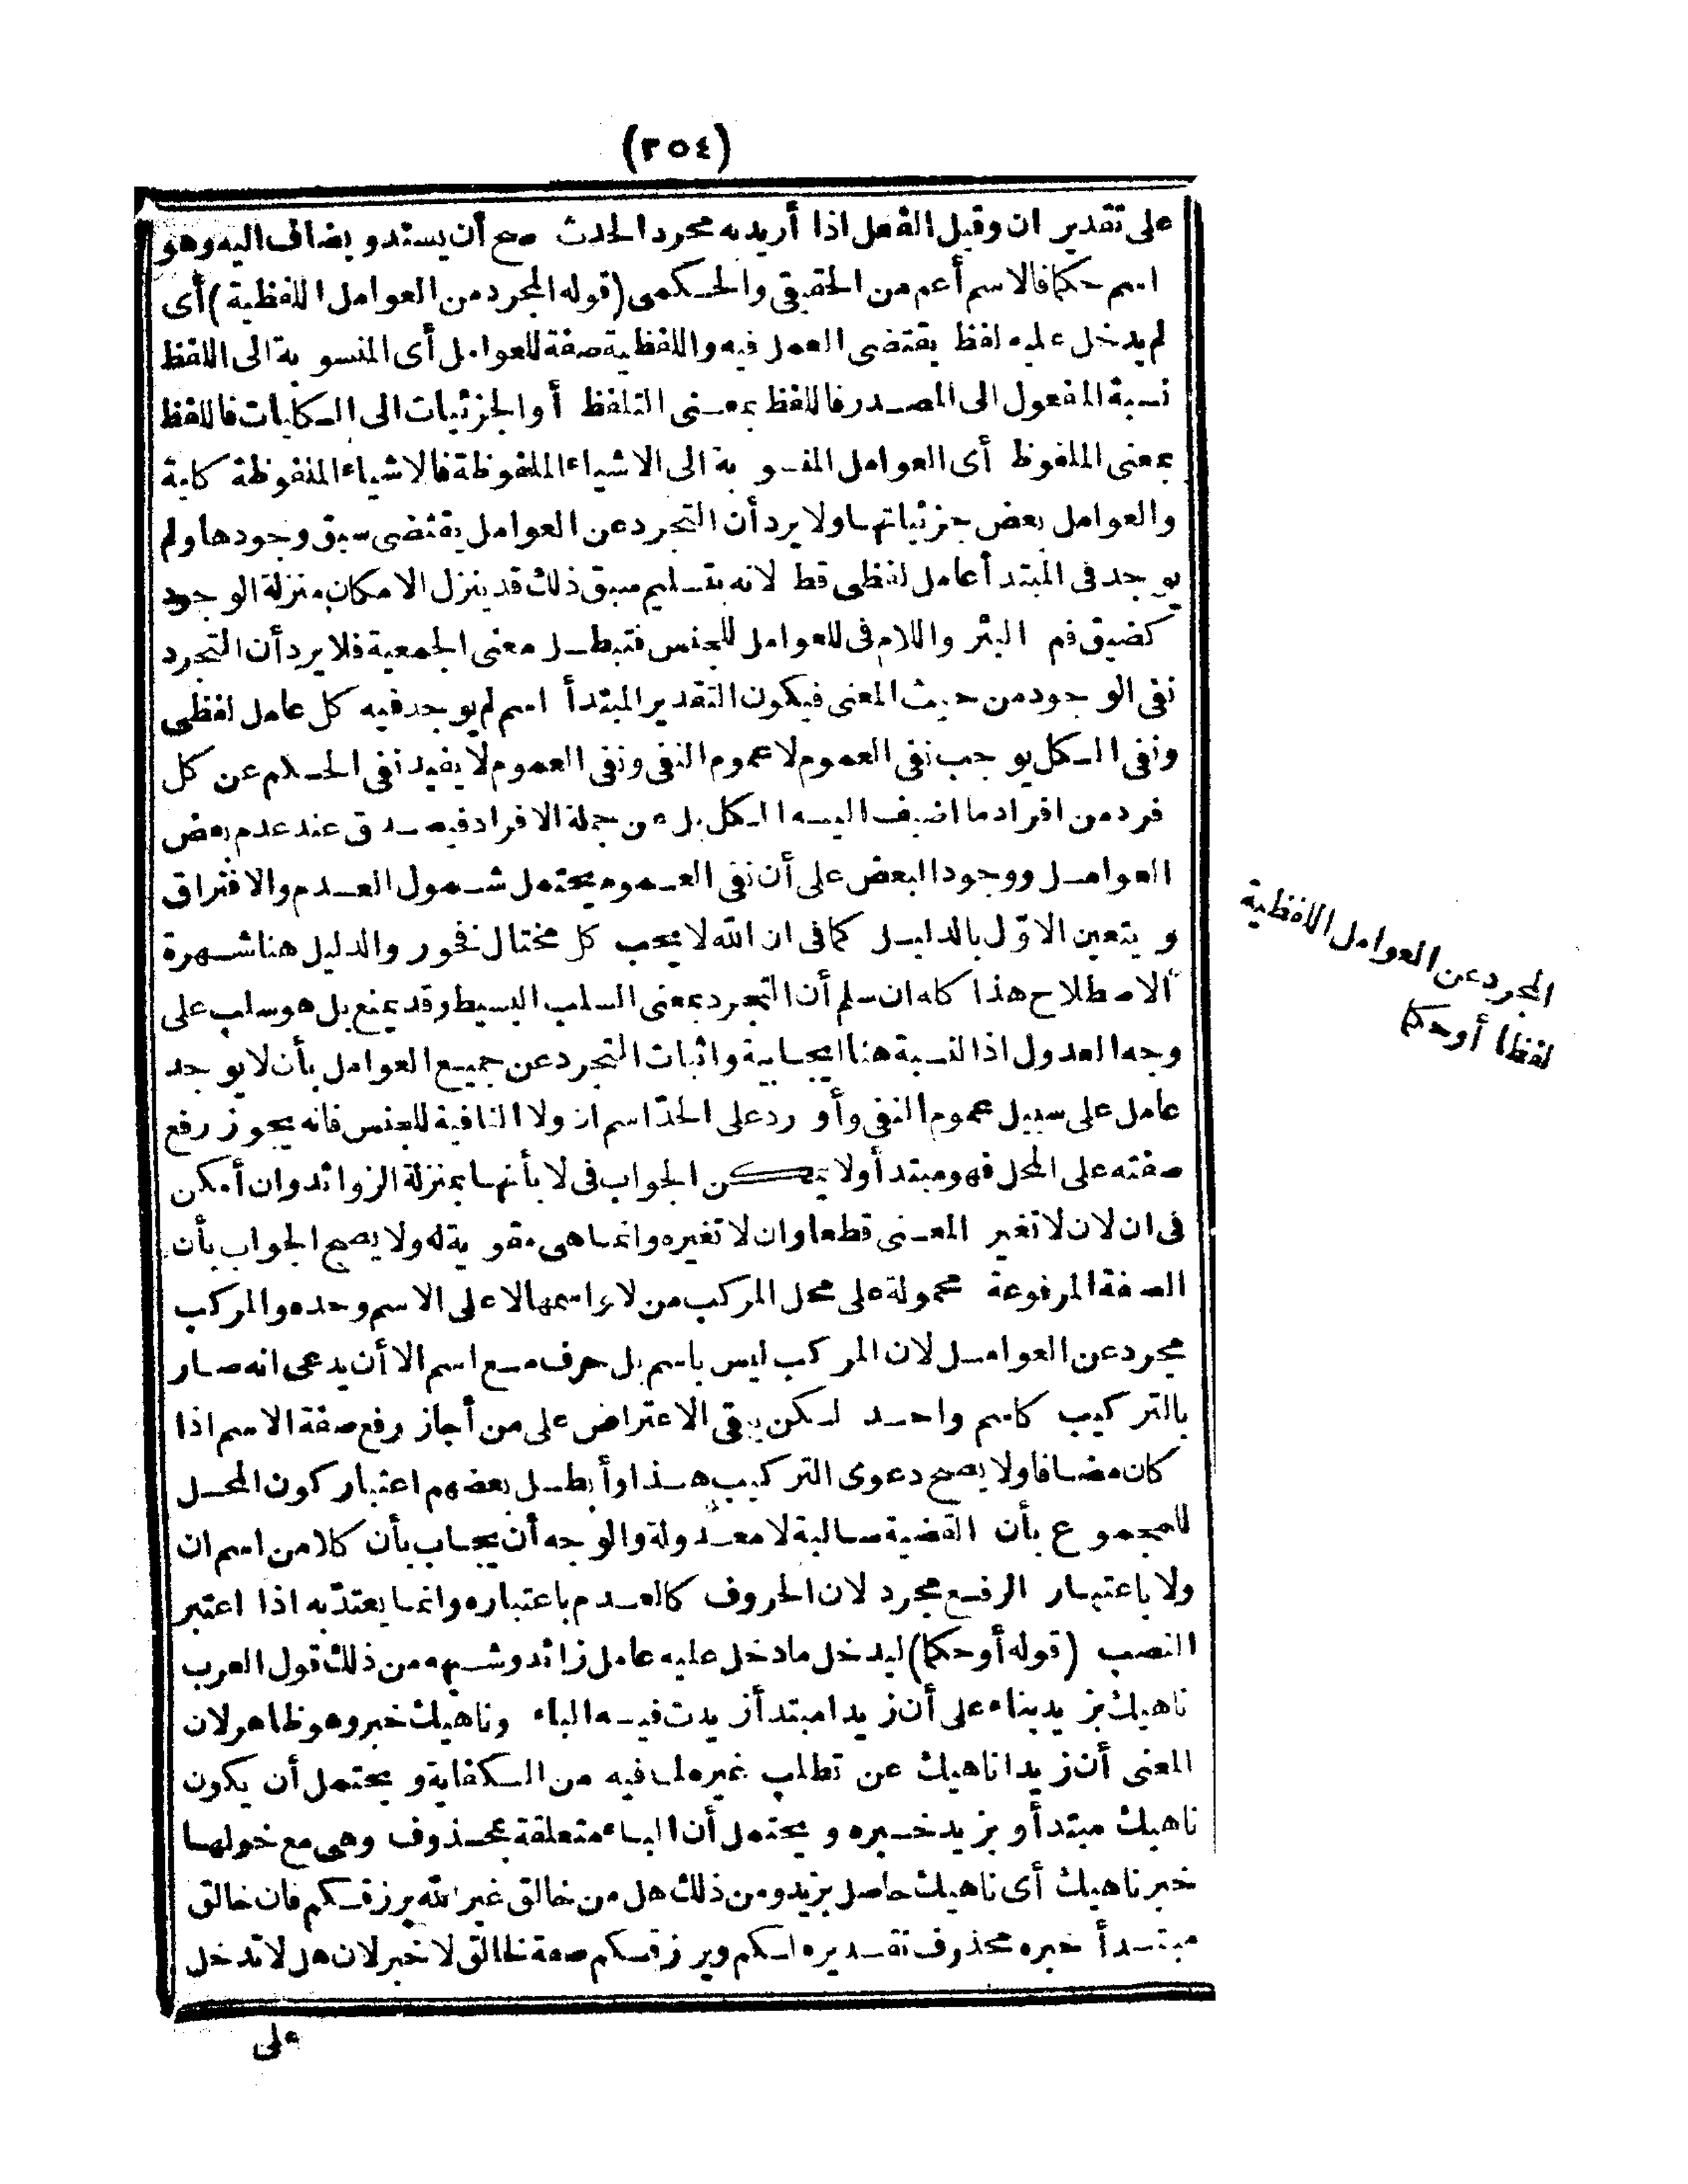 (٢٥٤)
على تقدير ان وقيل الفعل اذا أريد به مجرد الحدث صح أن يسند و يضاف اليه وهو
اسم حكما فالاسم أعم من الحقيقي والحكمى (قوله المجرد من العوامل اللفظية) أى
لم يدخل عليه لفظ يقتضى العمل فيه واللفظية صفة للعوامل أى المنسوبة الى اللفظ
نسبة المفعول الى المصدر فاللفظ بمعنى التلفظ أو الجزئيات الى الكليات فاللفظ
بمعنى الملفوظ أى العوامل المنسوبة الى الاشياء الملفوظة فالاشياء الملفوظة كلية
والعوامل بعض جزئياتها ولا يرد أن التجرد عن العوامل يقتضى سبق وجودها ولم
يوجد فى المبتدأ عامل لفظى قط لانه بتسليم سبق ذلك قد ينزل الامكان منزلة الوجود
كضيق فم البئر واللام فى للعوامل للجنس فتبطل معنى الجمعية فلا يرد أن التجرد
نفى الوجود من حيث المعنى فيكون التقدير المبتدأ اسم لم يوجد فيه كل عامل لفظى
ونفى الكل يوجب نفى العموم لا عموم النفى ونفى العموم لا يفيد نفى الحكم عن كل
فرد من افراد ما اضيف اليه الكل بل عن جملة الافراد فيصدق عند عدم بعض
العوامل ووجود البعض على أن نفى العموم يحتمل شمول العدم والافتراق
و يتعين الاوّل بالدليل كما فى ان الله لا يحب كل مختال فخور والدليل هنا شهرة
الاصطلاح هذا كله ان سلم أن التجرد بمعنى السلب البسيط وقد يمنع بل هو سلب على
وجه العدول اذ النسبة هنا ايجابية واثبات التجرد عن جميع العوامل بأن لا يوجد
عامل على سبيل عموم النفى وأورد على الحدّ اسم ان ولا النافية للجنس فانه يجوز رفع
صفته على المحل فهو مبتدأ ولا يمكن الجواب فى لا بأنها بمنزلة الزوائد وان أمكن
فى ان لان لا تغير المعنى قطعا وان لا تغيره وانما هى مقوية له ولا يصح الجواب بأن
الصفة المرفوعة محمولة على محل المركب من لا واسمها لا على الاسم وحده والمركب
مجرد عن العوامل لان المركب ليس باسم بل حرف مع اسم الا أن يدعى انه صار
بالتركيب كاسم واحد لكن يبقى الاعتراض على من أجاز رفع صفة الاسم اذا
كان مضافا ولا يصح دعوى التركيب هذا وأبطل بعضهم اعتبار كون المحل
للمجموع بأن القضية سالبة لا معدولة والوجه أن يجاب بأن كلا من اسم ان
ولا باعتبار الرفع مجرد لان الحروف كالعدم باعتباره وانما يعتدّ به اذا اعتبر
النصب (قوله أو حكما) ليدخل ما دخل عليه عامل زائد وشبهه من ذلك قول العرب
ناهيك بزيد بناء على أن زيدا مبتدأ زيدت فيه الباء وناهيك خبر وهو ظاهر لان
المعنى أن زيدا ناهيك عن تطلب غيره لما فيه من الكفاية و يحتمل أن يكون
ناهيك مبتدأ و بزيد خبره و يحتمل أن الباء متعلقة بمحذوف وهى مع خولها
خبر ناهيك أى ناهيك حاصل بزيد ومن ذلك هل من خالق غير الله يرزقكم فان خالق
مبتدأ خبره محذوف تقديره لكم ويرزقكم صفة لخالق لا خبر لان هل لا تدخل
على
المجرد عن العوامل اللفظية
لفظا أو حكما